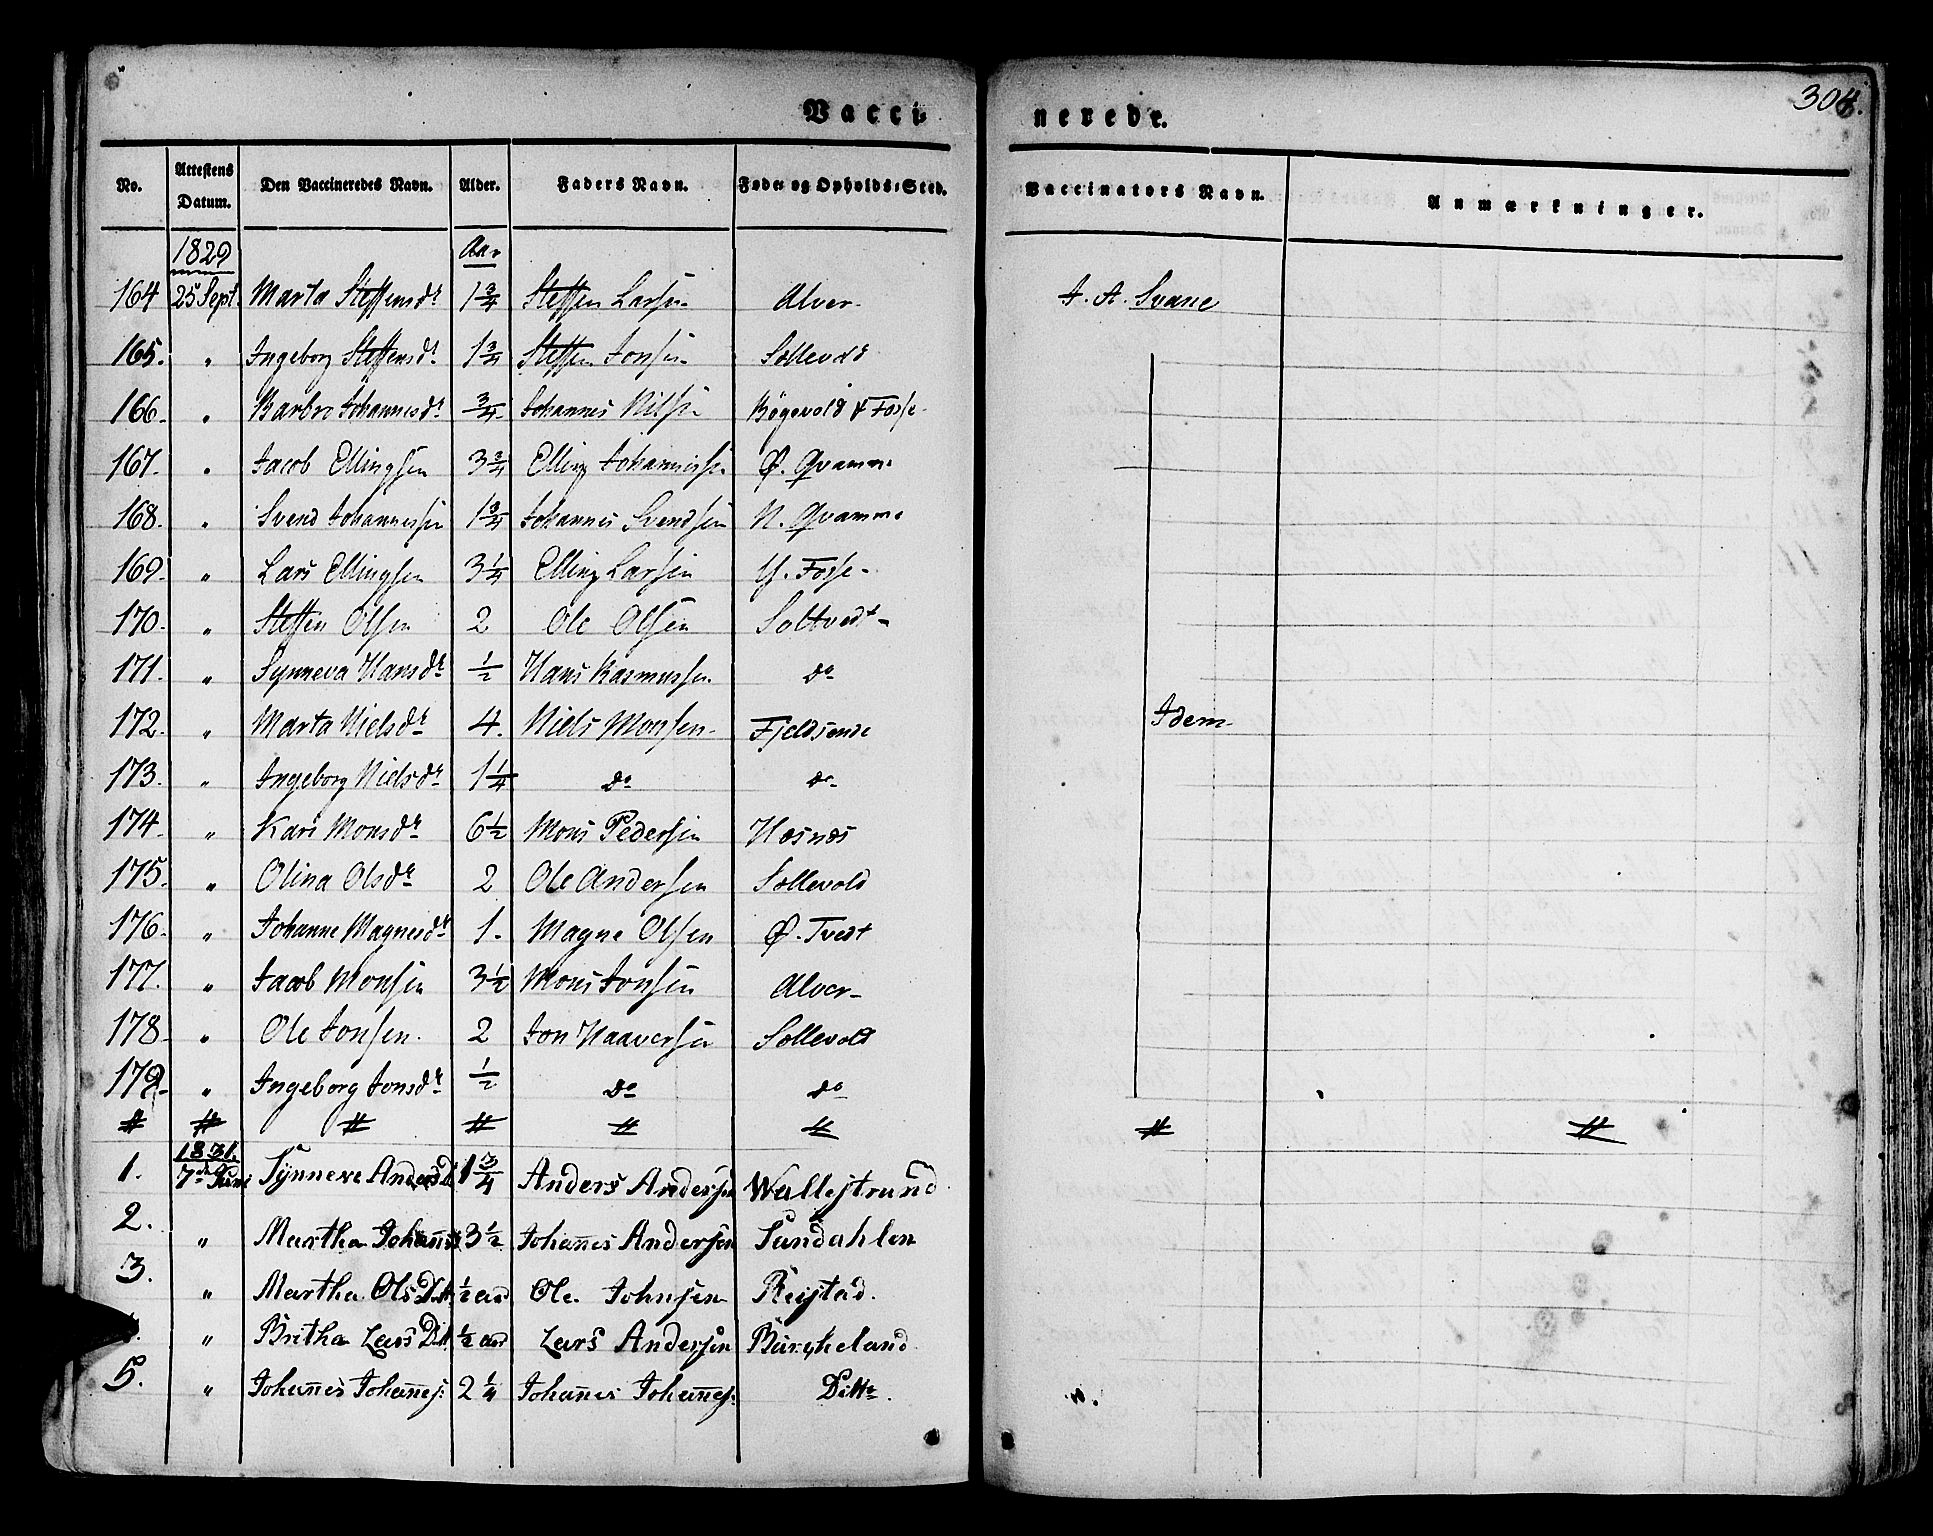 304.
Vaccinerede.
No. | Attestens Datum. | Den Vaccineredes Navn. | Alder. | Faders Navn. | Føde- og Opholds-Sted. | Vaccinators Navn. | Anmærkninger.
1829 | Aar
164 | 25 Sept. | Marta Steffensdr | 1 3/4 | Steffen Larsen | Alver | A. Svane
165. | " | Ingeborg Steffensdr | 1 3/4 | Steffen Jonsen | Sollevold
166. | " | Barbro Johannesdr | 3/4 | Johannes Nilsen | Bøgevold Fosse
167. | " | Jacob Ellingsen | 3 3/4 | Elling Johannessen | Ø. Qvamme
168. | " | Svend Johannessen | 1 3/4 | Johannes Svendsen | N. Qvamme
169. | " | Lars Ellingsen | 3 1/4 | Elling Larsen | Y. Fosse
170. | " | Steffen Olsen | 2 | Ole Olsen | Soltvedt
171. | " | Synneva Hansdr | 1/2 | Hans Rasmussen | do
172. | " | Marta Nielsdr | 4. | Niels Monsen | Fjeldsende | Idem
173. | " | Ingeborg Nielsdr | 1 1/4 | do | do
174. | " | Kari Monsdr | 6 1/2 | Mons Pedersen | Hosnæs
175. | " | Olina Olsdr | 2 | Ole Andersen | Sollevold
176. | " | Johanne Magnesdr | 1. | Magne Olsen | Ø. Tvedt
177. | " | Jacob Monsen | 3 1/2 | Mons Jonsen | Alver
178. | " | Ole Jonsen. | 2 | Jon Haaversen | Sollevold
179. | " | Ingeborg Jonsdr | 1/2 | do | do
1831.
1. | 7de Juni | Synneve Anders D. | 1 3/4 | Anders Andersen | Wallestrand
2. | " | Martha Johañes | 3 1/2 | Johañes Andersen | Sundahlen
3. | " | Martha Ols Dtt | 1/2 aar | Ole Johnsen | Reistad.
" | Britha Lars Dtt | 1/2 aar | Lars Andersen | Burkeland
5. | " | Johañes Johañes: | 2 1/4 | Johañes Johañes: | Ditto.